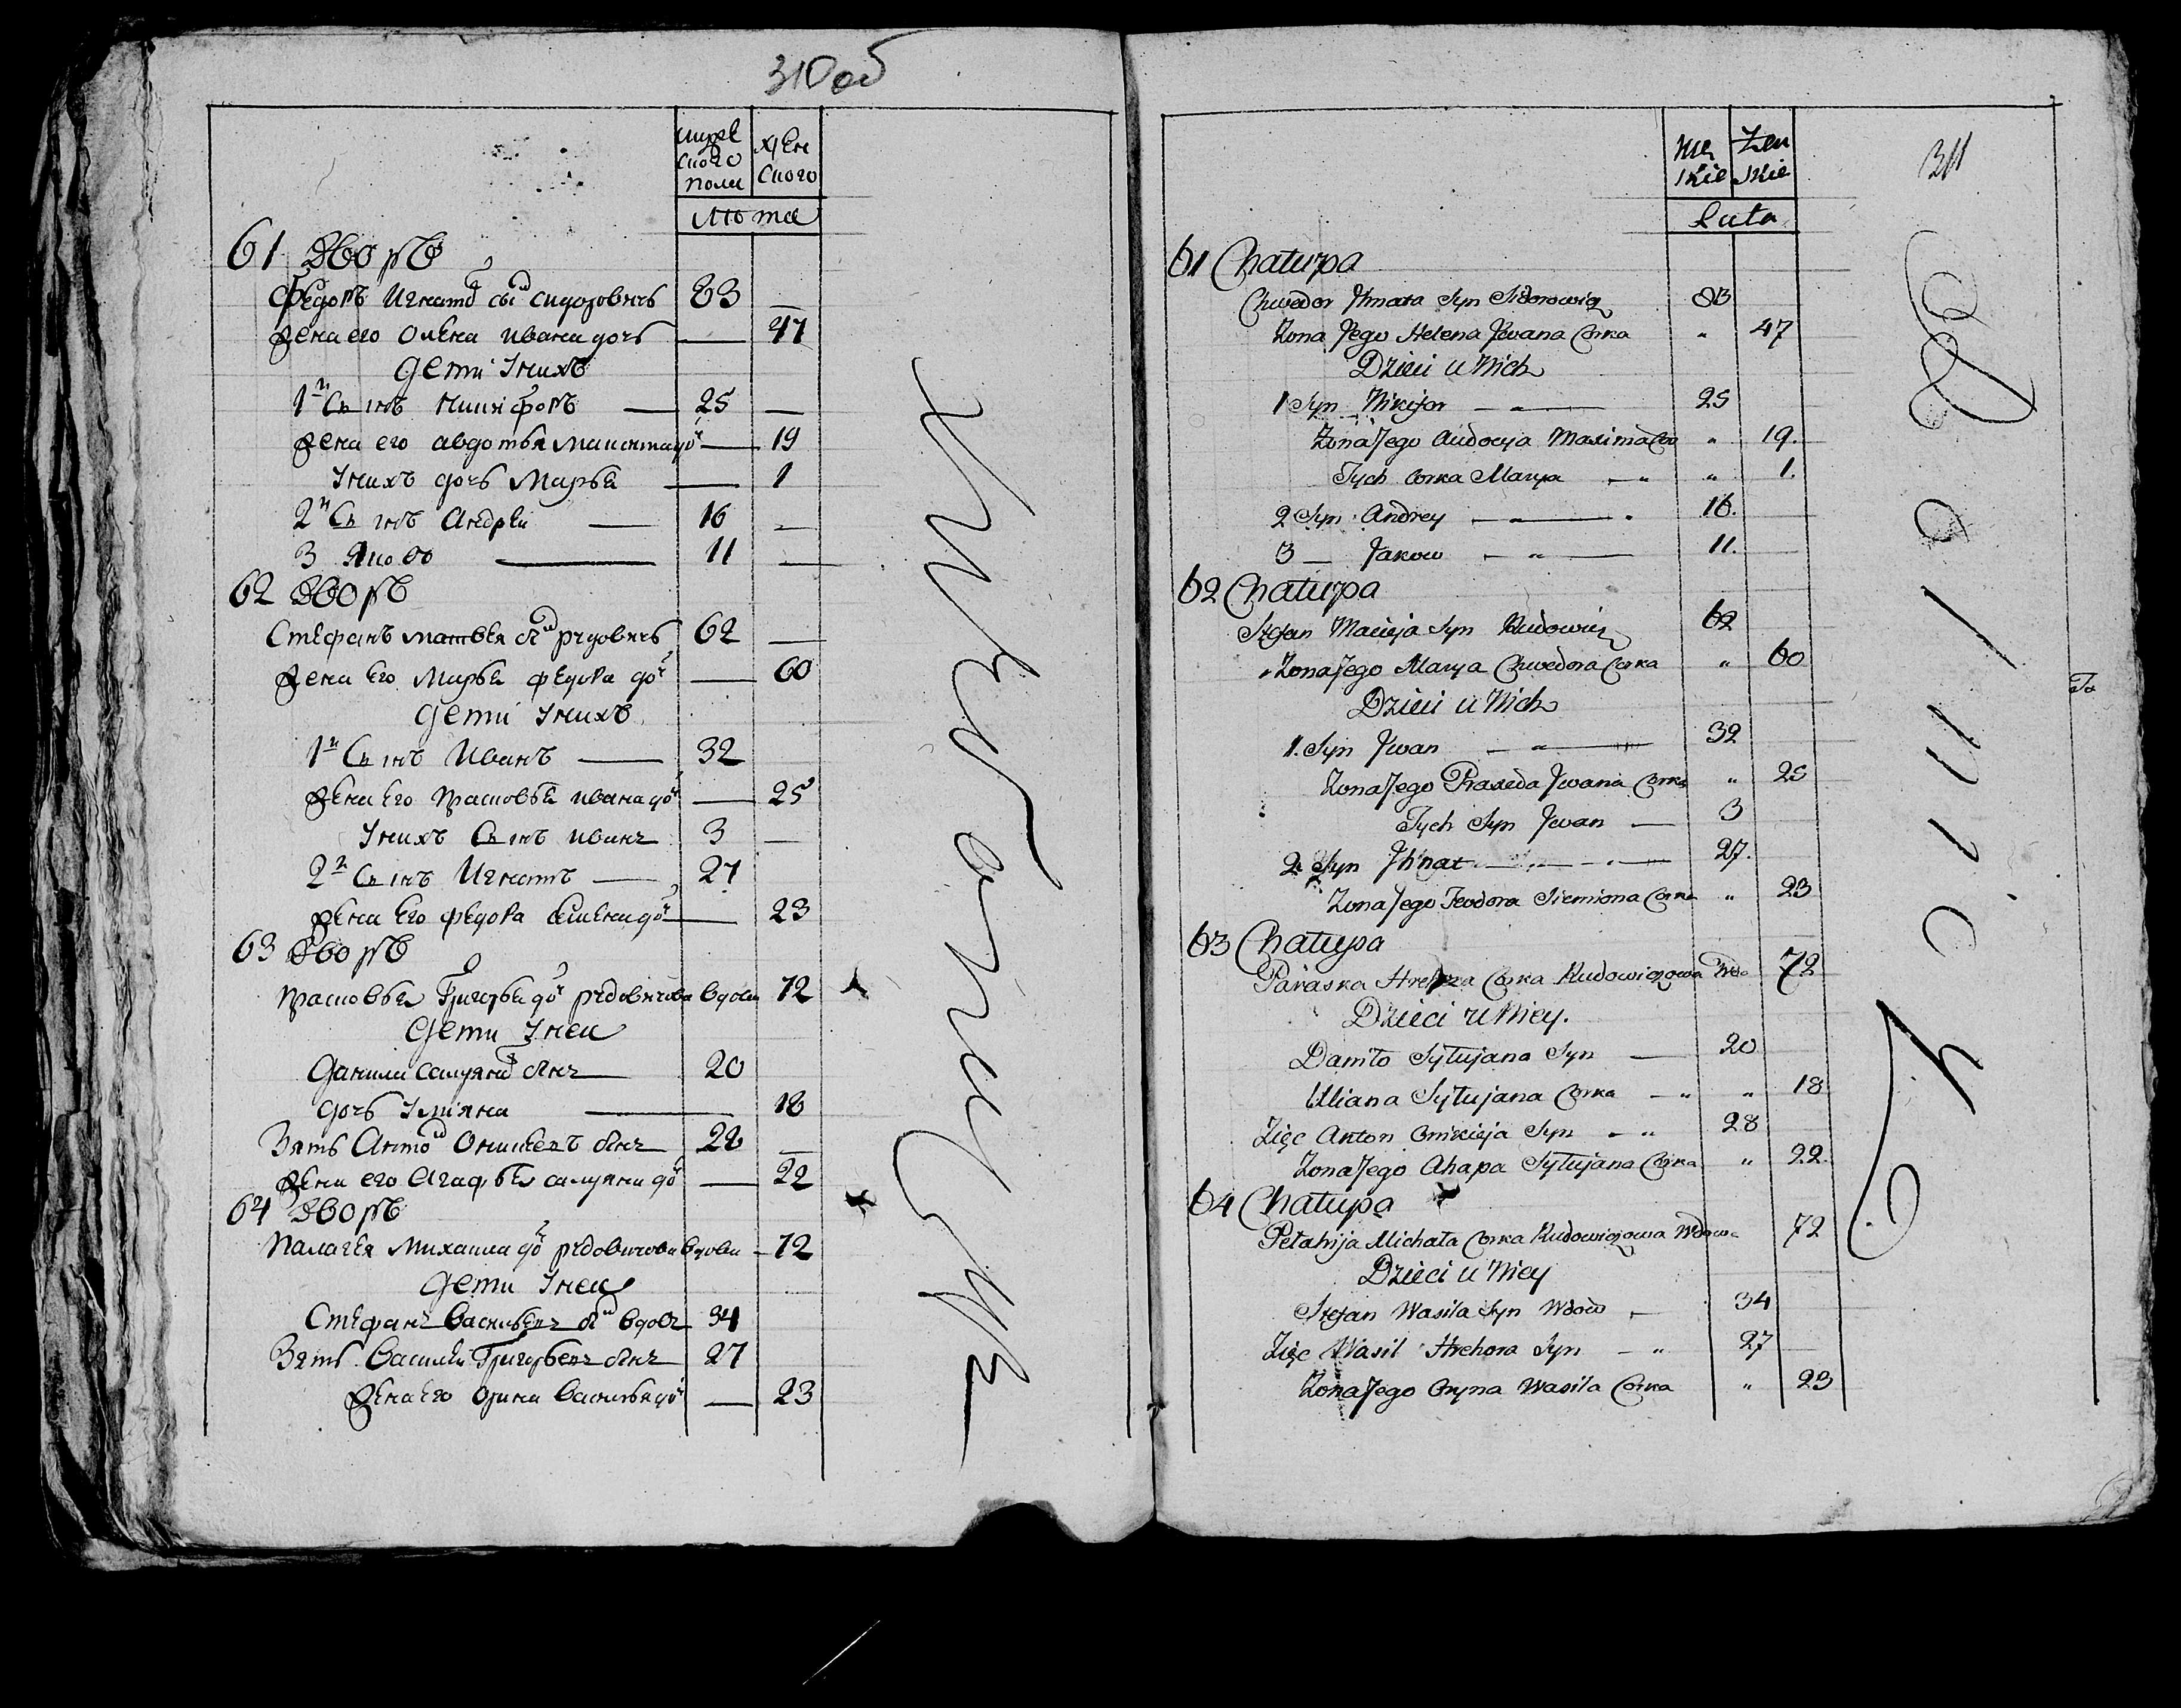 310 об
муже
ского
полу
жен
ского
лета
61 Дворъ
Федоръ Игнатов сын Сидоровичъ 83
жена его Олена Ивана дочь 47
дети у нихъ
1й Сынъ Никифоръ 25
жена его Авдотья Максима доч 19
у нихъ дочь Марья 1
2й Сынъ Андрей 16
3 Яковъ 11
62 Дворъ
Стефанъ Матвея сын Рудовичъ 62
жена его Марья Федора доч 60
дети у нихъ
1й Сынъ Иванъ 32
жена его Прасковья Ивана доч 25
у нихъ Сынъ Иванъ 3
2й Сынъ Игнатъ 27
жена его Федора Семена доч 23
63 Дворъ
Прасковья Григорья доч Рудовичова вдова 72
дети у неи
Данила Салуяна сынъ 20
дочь Ульяна 18
Зять Антон сынъ 28
жена его Агафья Салуяна доч 22
64 Дворъ
Палагея Михаила доч Рудовичова вдова 72
дети у неи
Стефанъ Васильевъ сын вдовъ 34
Зять Василей Григорьевъ сынъ 27
жена его Орина Василья доч 23
311
Mę
skie
Żeń
skie
Lata
61 Chałupa
Chwedor Ihnata Syn Sidorowicz 83
Żona Jego Helena Jwana Corka " 47
Dzieci u Nich
1 Syn Nikifor " 25
Żona Jego Audocya Maxima Cor " 19.
Tych Corka Marya " " 1.
2 Syn Andrey " 16.
3 Jakow " 11.
62 Chałupa
Stefan Macieja Syn Rudowicz 62
Żona Jego Marya Chwedora Corka " 60
Dzieci u Nich
1. Syn Jwan " 32
Żona Jego Praxeda Jwana Corka " 25
Tych Syn Jwan 3
2. Syn Jhnat " 27.
Żona Jego Teodora Siemiona Corka " 23
63 Chałupa
Paraska Hrehora Corka Rudowiczowa Wdo 72
Dzieci u Niey.
Daniło Syłujana Syn 20
Uliana Syłujana Corka " " 18
Zięc Anton Onikieja Syn " 28
Żona Jego Ahapa Syłujana Corka " 22.
64 Chałupa
Pełahija Michała Corka Rudowiczowa Wdowa 72
Dzieci u Niey
Stefan Wasila Syn Wdow 34
Zięc Wasil Hrehora Syn " 27
Żona Jego Oryna Wasila Corka " 23